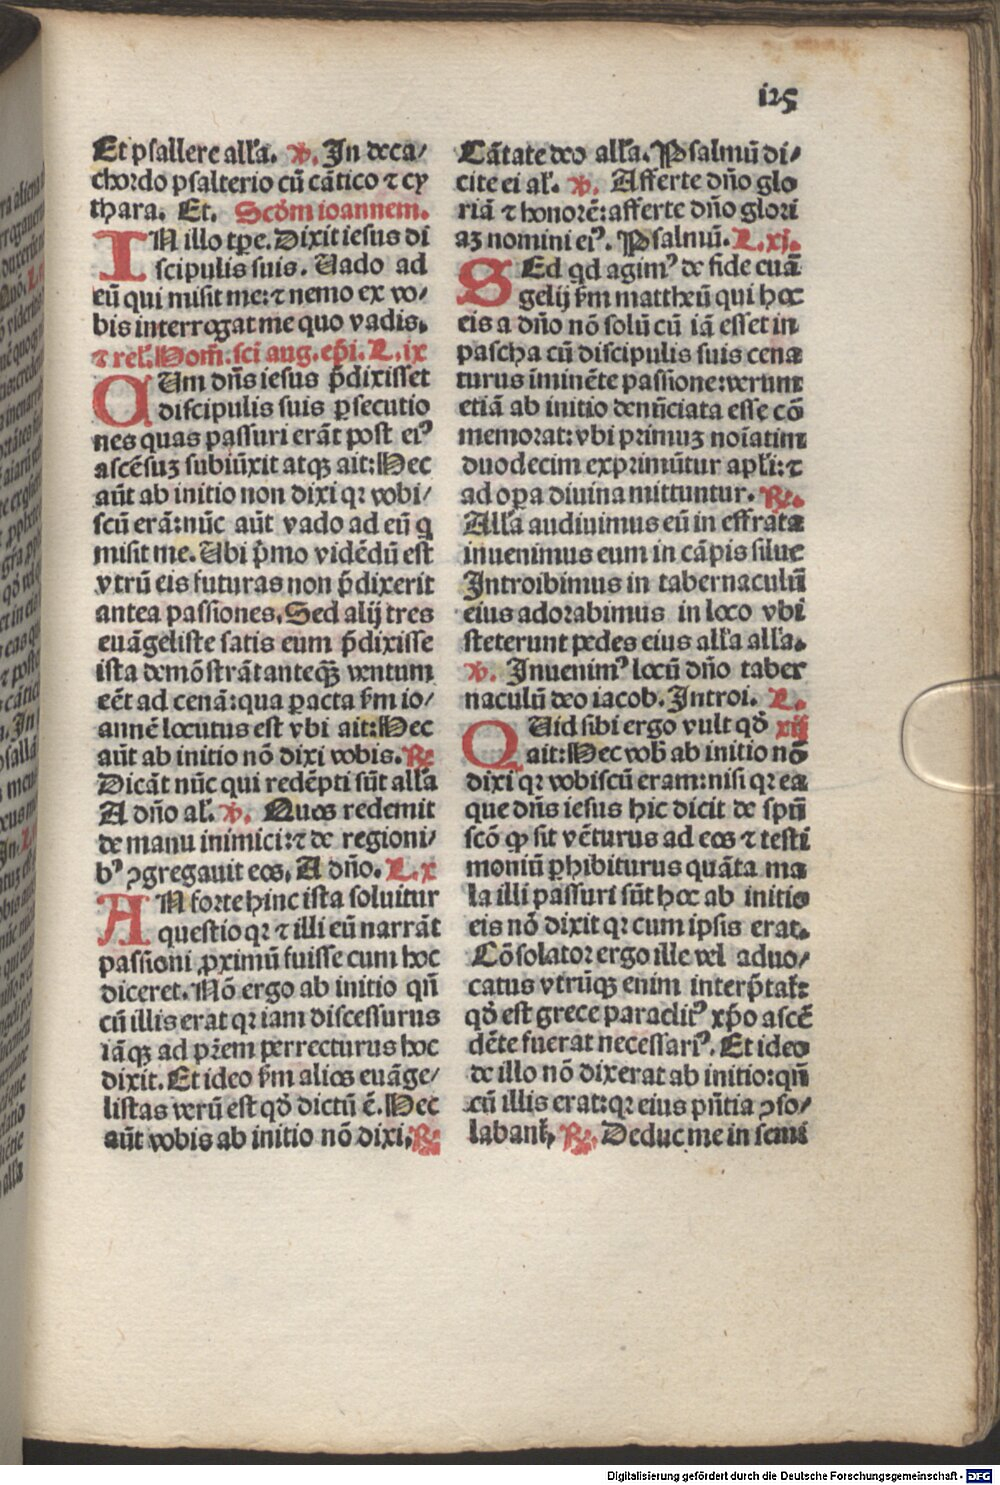 125
Et psallere alła. ꝟ. In deca/
chordo psalterio cū cātico ⁊ cy
thara. Et. Scd̄m ioannem.
IN illo tp̄e. Dixit iesus di
scipulis suis. Uado ad
eū qui misit me: ⁊ nemo ex vo/
bis interrogat me quo vadis.
⁊ rel. Hom̄. sci aug. ep̄i. L. ix
CUm dn̄s iesus p̄dixisset
discipulis suis ꝑsecutio
nes quas passuri erāt post eiꝰ
ascēsuꝫ subiūxit atqꝫ ait: Hec
aūt ab initio non dixi qꝛ vobi/
scū erā: nūc aūt vado ad eū q
misit me. Ubi p̄mo vidēdū est
vtrū eis futuras non p̄dixerit
antea passiones. Sed alij tres
euāgeliste satis eum p̄dixisse
ista demōstrāt anteqꝫ ventum
eēt ad cenā: qua ꝑacta ẜm io/
annē locutus est vbi ait: Hec
aūt ab initio nō dixi vobis. ℟
Dicāt nūc qui redēpti sūt alła
A dn̄o al. ꝟ. Quos redemit
de manu inimici: ⁊ de regioni/
bꝰ ꝯgregauit eos. A dn̄o. L. x
AN forte hinc ista soluitur
questio qꝛ ⁊ illi eū narrāt
passioni ꝓximū fuisse cum hoc
diceret. Nō ergo ab initio qn̄
cū illis erat qꝛ iam discessurus
iāqꝫ ad pr̄em perrecturus hoc
dixit. Et ideo ẜm alios euāge/
listas verū est qd̄ dictū ē. Hec
aūt vobis ab initio nō dixi. ℟
Cātate deo alła. Psalmū di/
cite ei al. ꝟ. Afferte dn̄o glo
riā ⁊ honorē: afferte dn̄o glori
aꝫ nomini eiꝰ. Psalmū. L. xj.
SEd qd agimꝰ de fide euā
gelij ẜm mattheū qui hoc
eis a dn̄o nō solū cū iā esset in
pascha cū discipulis suis cena
turus iminēte passione: verum
etiā ab initio denūciata esse cō
memorat: vbi primuꝫ noīatim
duodecim exprimūtur apłi: ⁊
ad oꝑa diuina mittuntur. ℟.
Alła audiuimus eū in effrata
inuenimus eum in cāpis silue
Introibimus in tabernaculū
eius adorabimus in loco vbi
steterunt pedes eius alła alła.
ꝟ. Inuenimꝰ locū dn̄o taber
naculū deo iacob. Introi. L.
QUid sibi ergo vult qd̄ xij
ait: Hec vob̄ ab initio nō
dixi qꝛ vobiscū eram: nisi qꝛ ea
que dn̄s iesus hic dicit de spū
scō ꝙ sit vēturus ad eos ⁊ testi
moniū ꝑhibiturus quāta ma
la illi passuri sūt hoc ab initio
eis nō dixit qꝛ cum ipsis erat.
Cōsolator ergo ille vel aduo/
catus vtrūqꝫ enim interp̄tat̄:
qd̄ est grece paraclitꝰ xp̄o ascē
dēte fuerat necessariꝰ. Et ideo
de illo nō dixerat ab initio: qn̄
cū illis erat: qꝛ eius pn̄tia ꝯso/
labant̄. ℟. Deduc me in semi
Digitalisierung gefördert durch die Deutsche Forschungsgemeinschaft - DFG